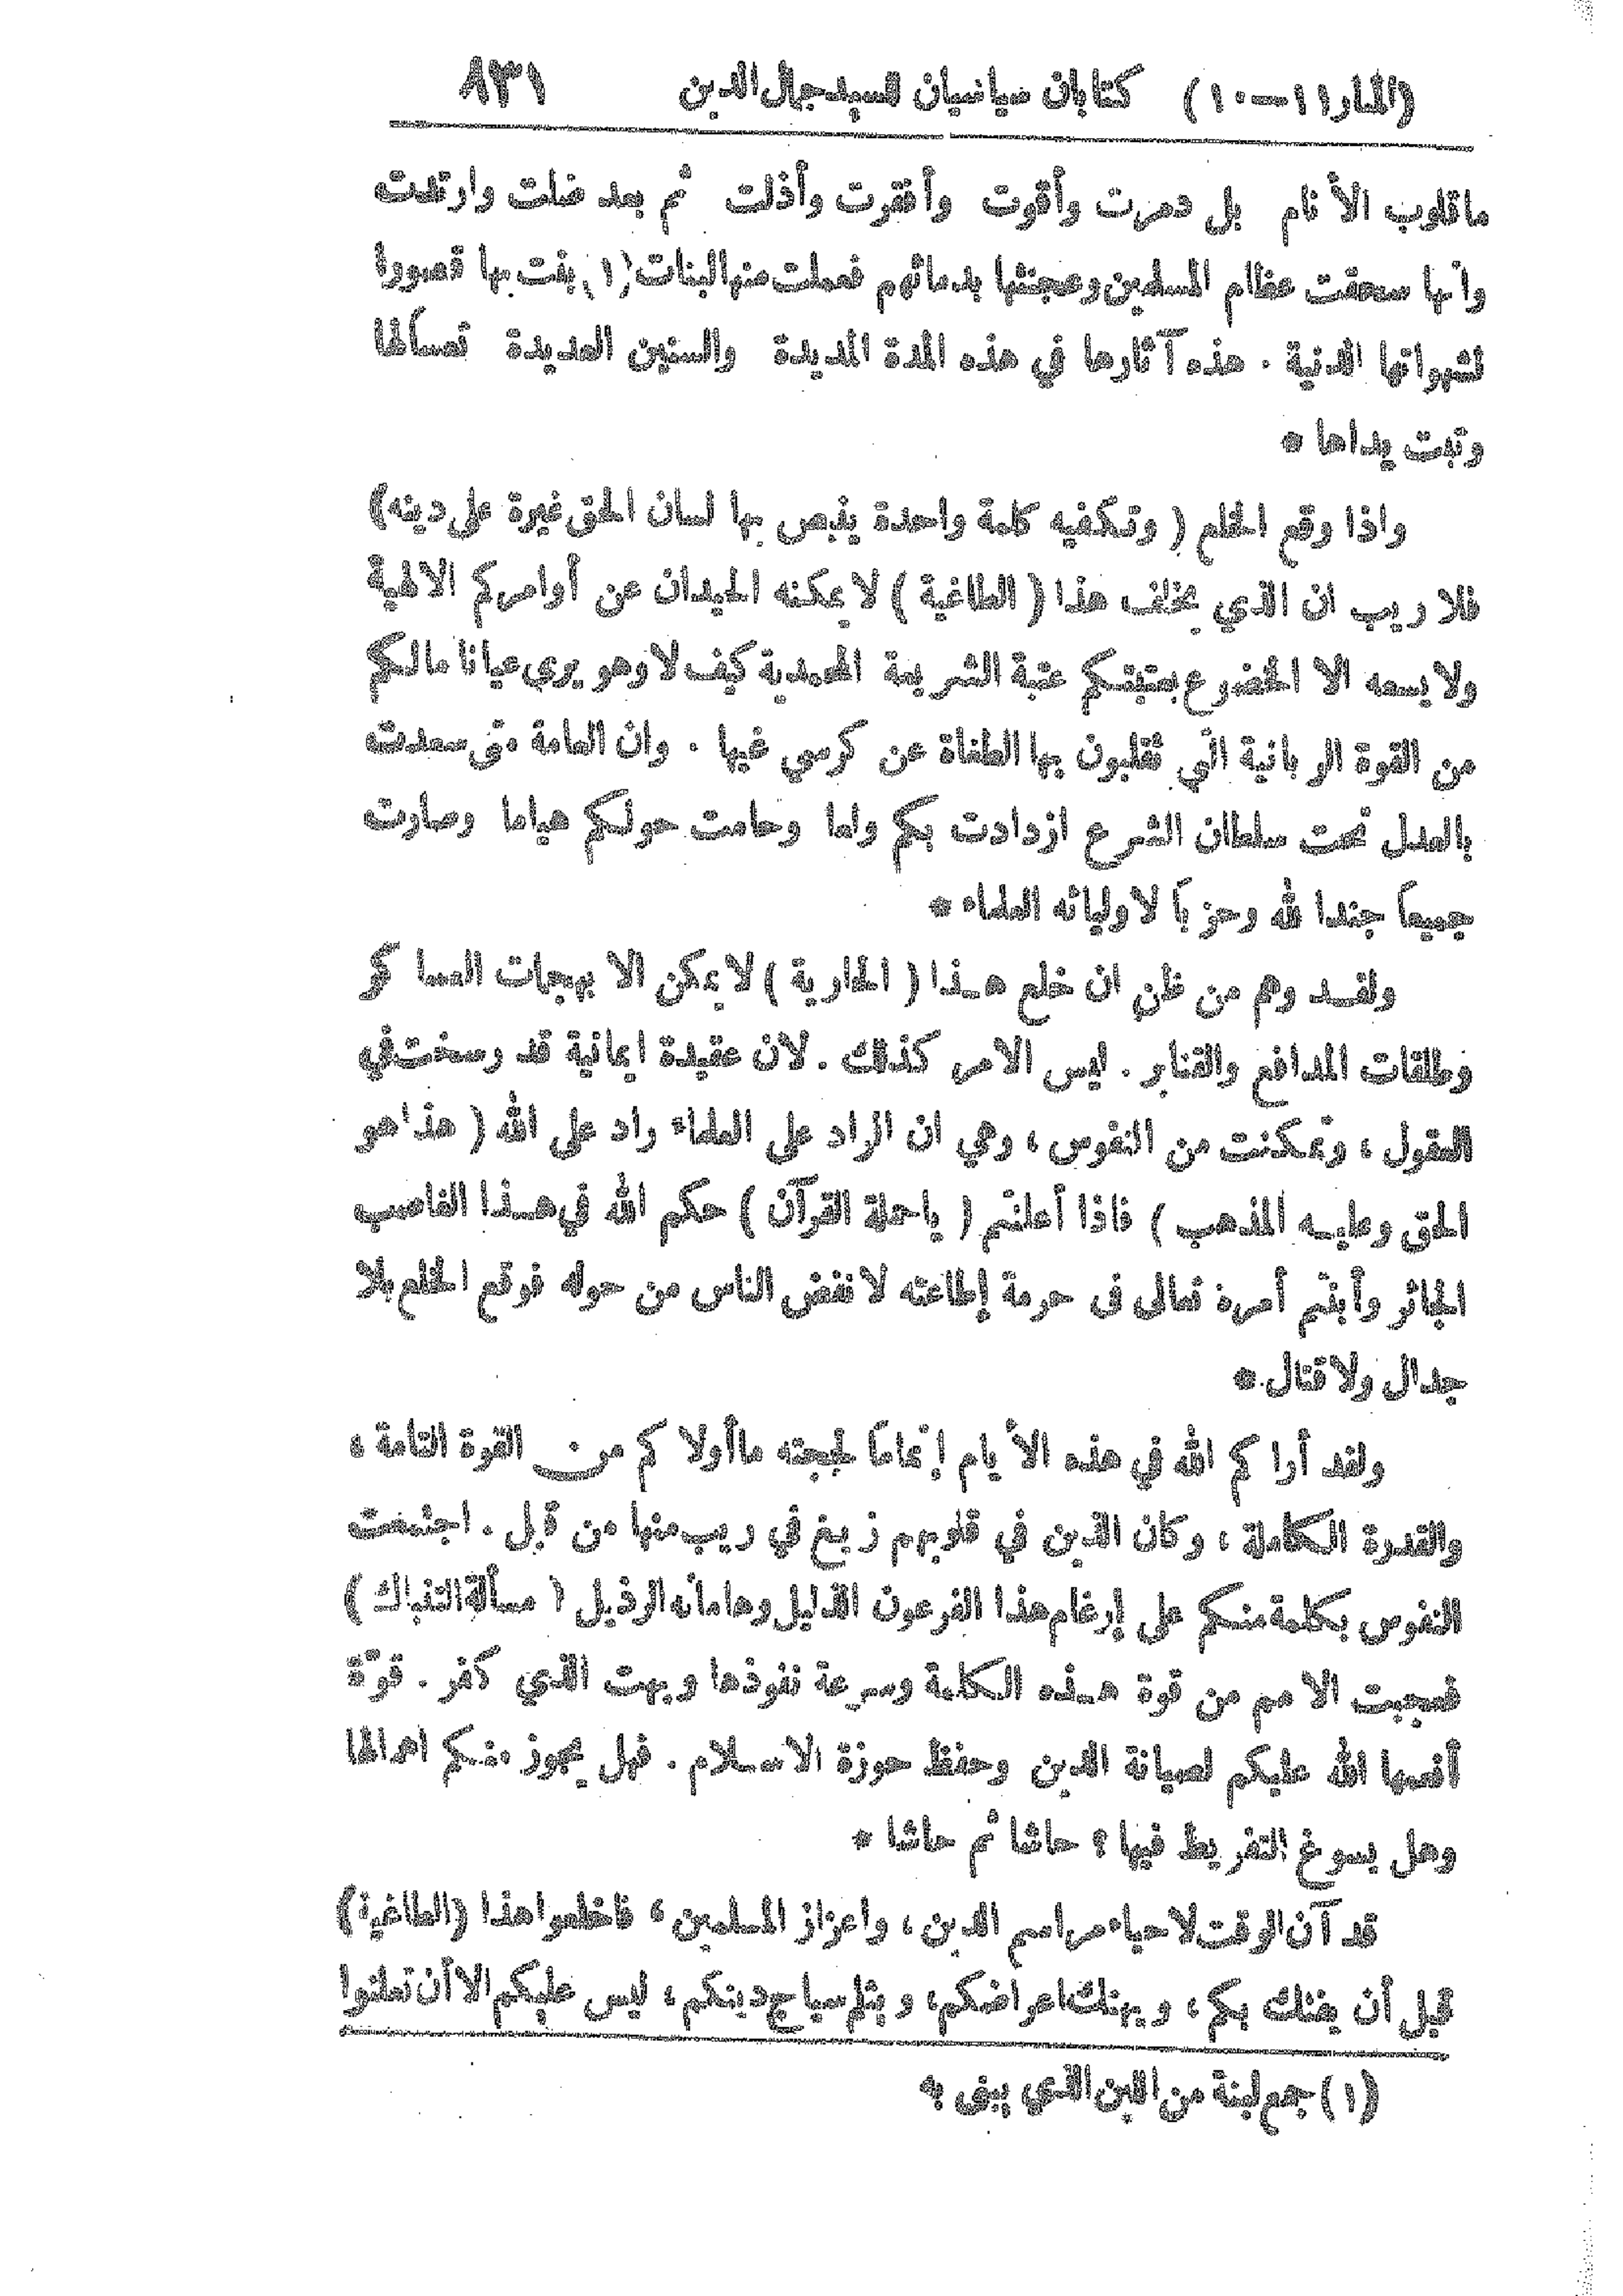 (المنار ١١–١٠) كتابان سياسيان للسيد جمال الدين ٨٣١
ما قلوب الأنام بل دمرت وأقوت وأفقرت وأذلت ثم بعد ضلت وارتدت
وانها سحقت عظام المسلمين وعجنتها بدمائهم فعملت منها لبنات (١) بنت بها قصورا
لشهواتها الدنية . هذه آثارها في هذه المدة المديدة والسنين العديدة تعسا لها
وتبت يداها *
واذا وقع الخلع ( وتكفيه كلمة واحدة ينبص بها لسان الحق غيرة على دينه )
فلا ريب ان الذي يخلف هذا ( الطاغية ) لا يمكنه الحيدان عن أوامركم الالهية
ولا يسعه الا الخضوع بعتبتكم عتبة الشريعة المحمدية كيف لا وهو يرى عيانا مالكم
من القوة الربانية التي تقلبون بها الطغاة عن كرسي غيها . وان العامة متى سعدت
بالعدل تحت سلطان الشرع ازدادت بكم ولعا وحامت حولكم هياما وصارت
جميعاً جندا لله وحزباً لاوليائه العلماء *
ولقد وهم من ظن ان خلع هذا ( الحارية ) لا يمكن الا بهجمات العساكر
وطلقات المدافع والقنابر . ليس الامر كذلك . لان عقيدة ايمانية قد رسخت في
العقول ، وتمكنت من النفوس ، وهي ان الراد على العلماء راد على الله ( هذا هو
الحق وعليه المذهب ) فاذا أعلنتم ( يا حملة القرآن ) حكم الله في هذا الغاصب
الجائر وأبنتم أمره تعالى فى حرمة إطاعته لا نفض الناس من حوله فوقع الخلع بلا
جدال ولا قتال *
ولقد أراكم الله في هذه الأيام إتماماً لحجته ما أولاكم من القوة التامة ،
والقدرة الكاملة ، وكان الذين في قلوبهم زيغ في ريب منها من قبل . اجتمعت
النفوس بكلمة منكم على إرغام هذا الفرعون الذليل وهامانه الرذيل ( مسألة التنباك )
فعجبت الامم من قوة هذه الكلمة وسرعة نفوذها وبهت الذي كفر . قوّة
أنعمها الله عليكم لصيانة الدين وحفظ حوزة الاسلام . فهل يجوز منكم اهمالها
وهل يسوغ التفريط فيها ؟ حاشا ثم حاشا *
قد آن الوقت لاحياء مراسم الدين ، واعزاز المسلمين ، فاخلعوا هذا (الطاغية)
قبل أن يفتك بكم ، ويهتك اعراضكم ، ويثلم سياج دينكم ، ليس عليكم الا أن تعلنوا
(١) جمع لبنة من اللبن الذي يبنى به